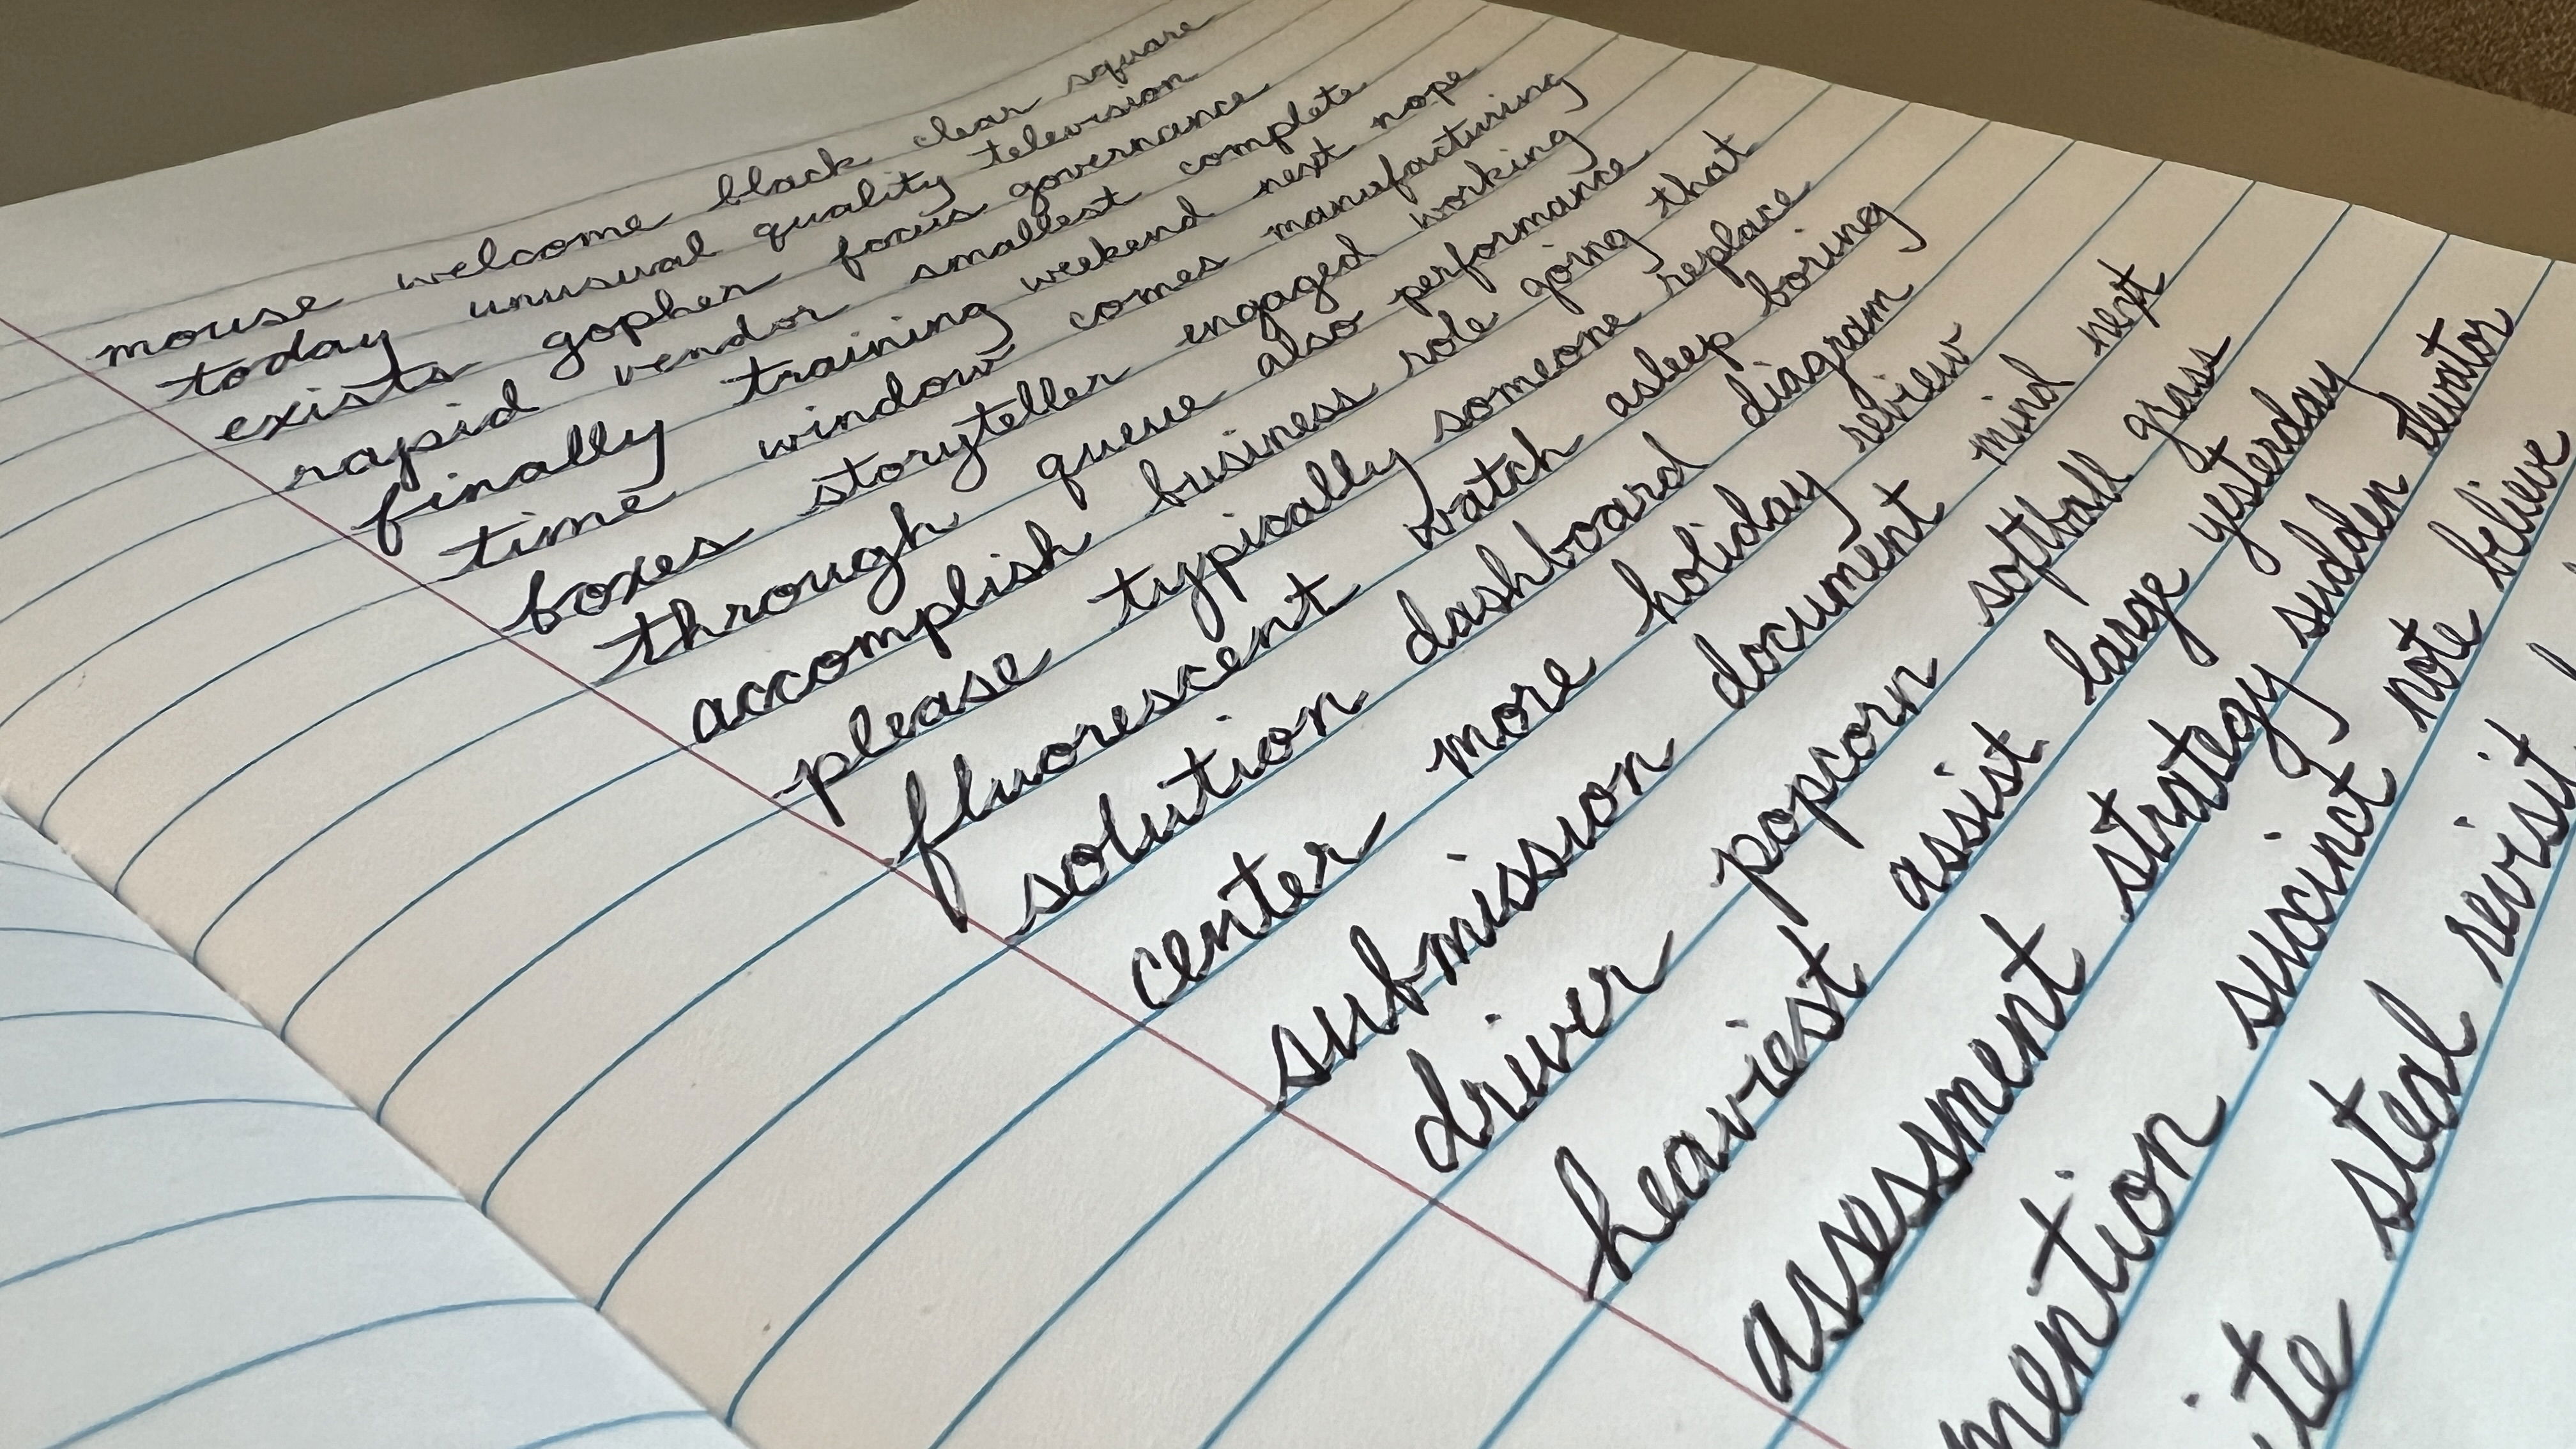 mouse welcome black clear square
today unusual quality television
exists gopher focus governance
rapid vendor smallest complete
finally training weekend next nope
time window comes manufacturing
boxes storyteller engaged working
through queue also performance
accomplish business role going that
please typically someone replace
fluorescent watch asleep boring
solution dashboard diagram
center more holiday review
submission document mind next
driver popcorn softball grass
heaviest assist large yesterday
assessment strategy sudden elevator
mention succinct note believe
steal revisit